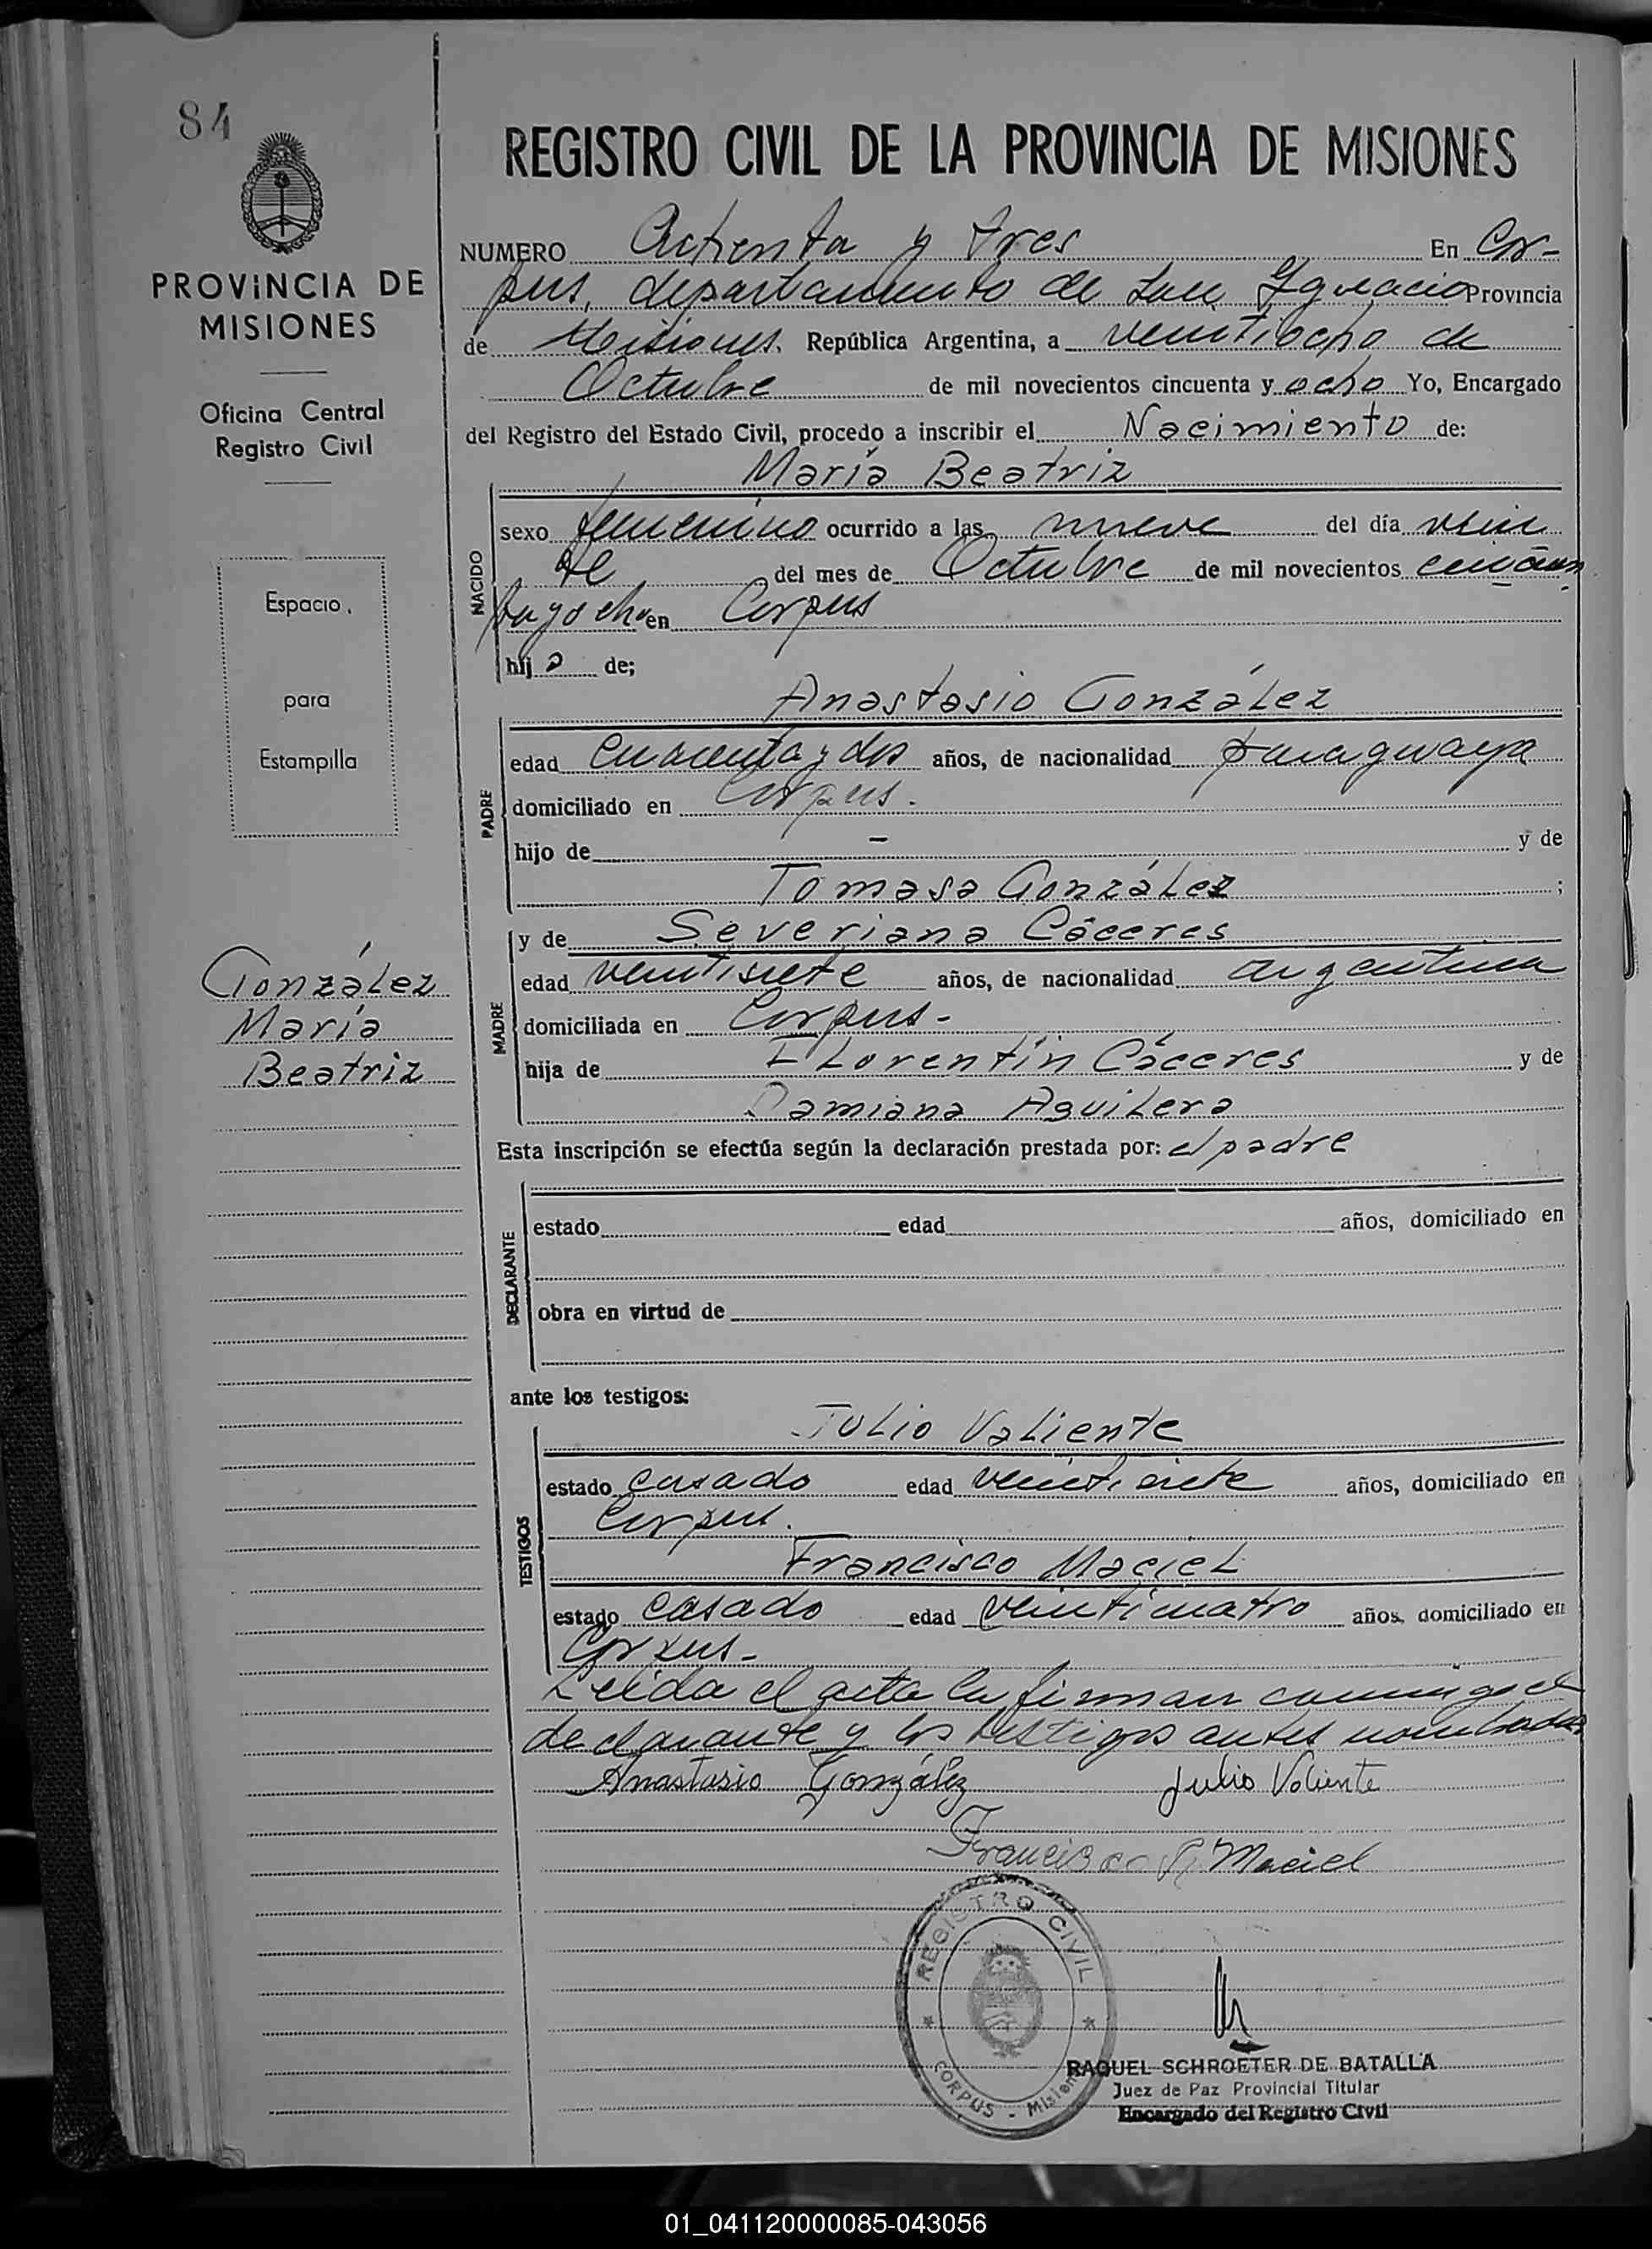 84
REGISTRO CIVIL DE LA PROVINCIA DE MISIONES
PROVINCIA DE
MISIONES
Oficina Central
Registro Civil
Espacio
para
Estampilla
González
María
Beatriz
NUMERO Octenta y tres En Cor-
pus, departamento de San Ignacio Provincia
de Misiones, República Argentina, a veintiocho de
Octubre de mil novecientos cincuenta y ocho Yo, Encargado
del Registro del Estado Civil, procedo a inscribir el Nacimiento de:
María Beatriz
NACIDO
sexo femenino ocurrido a las nueve del día vein
te del mes de Octubre de mil novecientos cincuen
ta y ocho en Corpus
hij a de;
Anastasio González
PADRE
edad cuarenta y dos años, de nacionalidad paraguaya
domiciliado en Corpus.
hijo de - y de
Tomasa González ;
y de Severiana Cáceres
MADRE
edad veintisiete años, de nacionalidad argentina
domiciliada en Corpus-
hija de Llorentín Cáceres y de
Damiana Aguilera
Esta inscripción se efectúa según la declaración prestada por: el padre
DECLARANTE
estado edad años, domiciliado en
obra en virtud de
ante los testigos:
Julio Valiente
TESTIGOS
estado casado edad veintisiete años, domiciliado en
Corpus.
Francisco Maciel
estado casado edad veinticuatro años, domiciliado en
Corpus-
Leída el acta la firman conmigo el
declarante y los testigos antes nombrados
Anastasio González Julio Valiente
Francisco Maciel
REGISTRO CIVIL
CORPUS - Misiones
RAQUEL SCHROETER DE BATALLA
Juez de Paz Provincial Titular
Encargado del Registro Civil
01_041120000085-043056